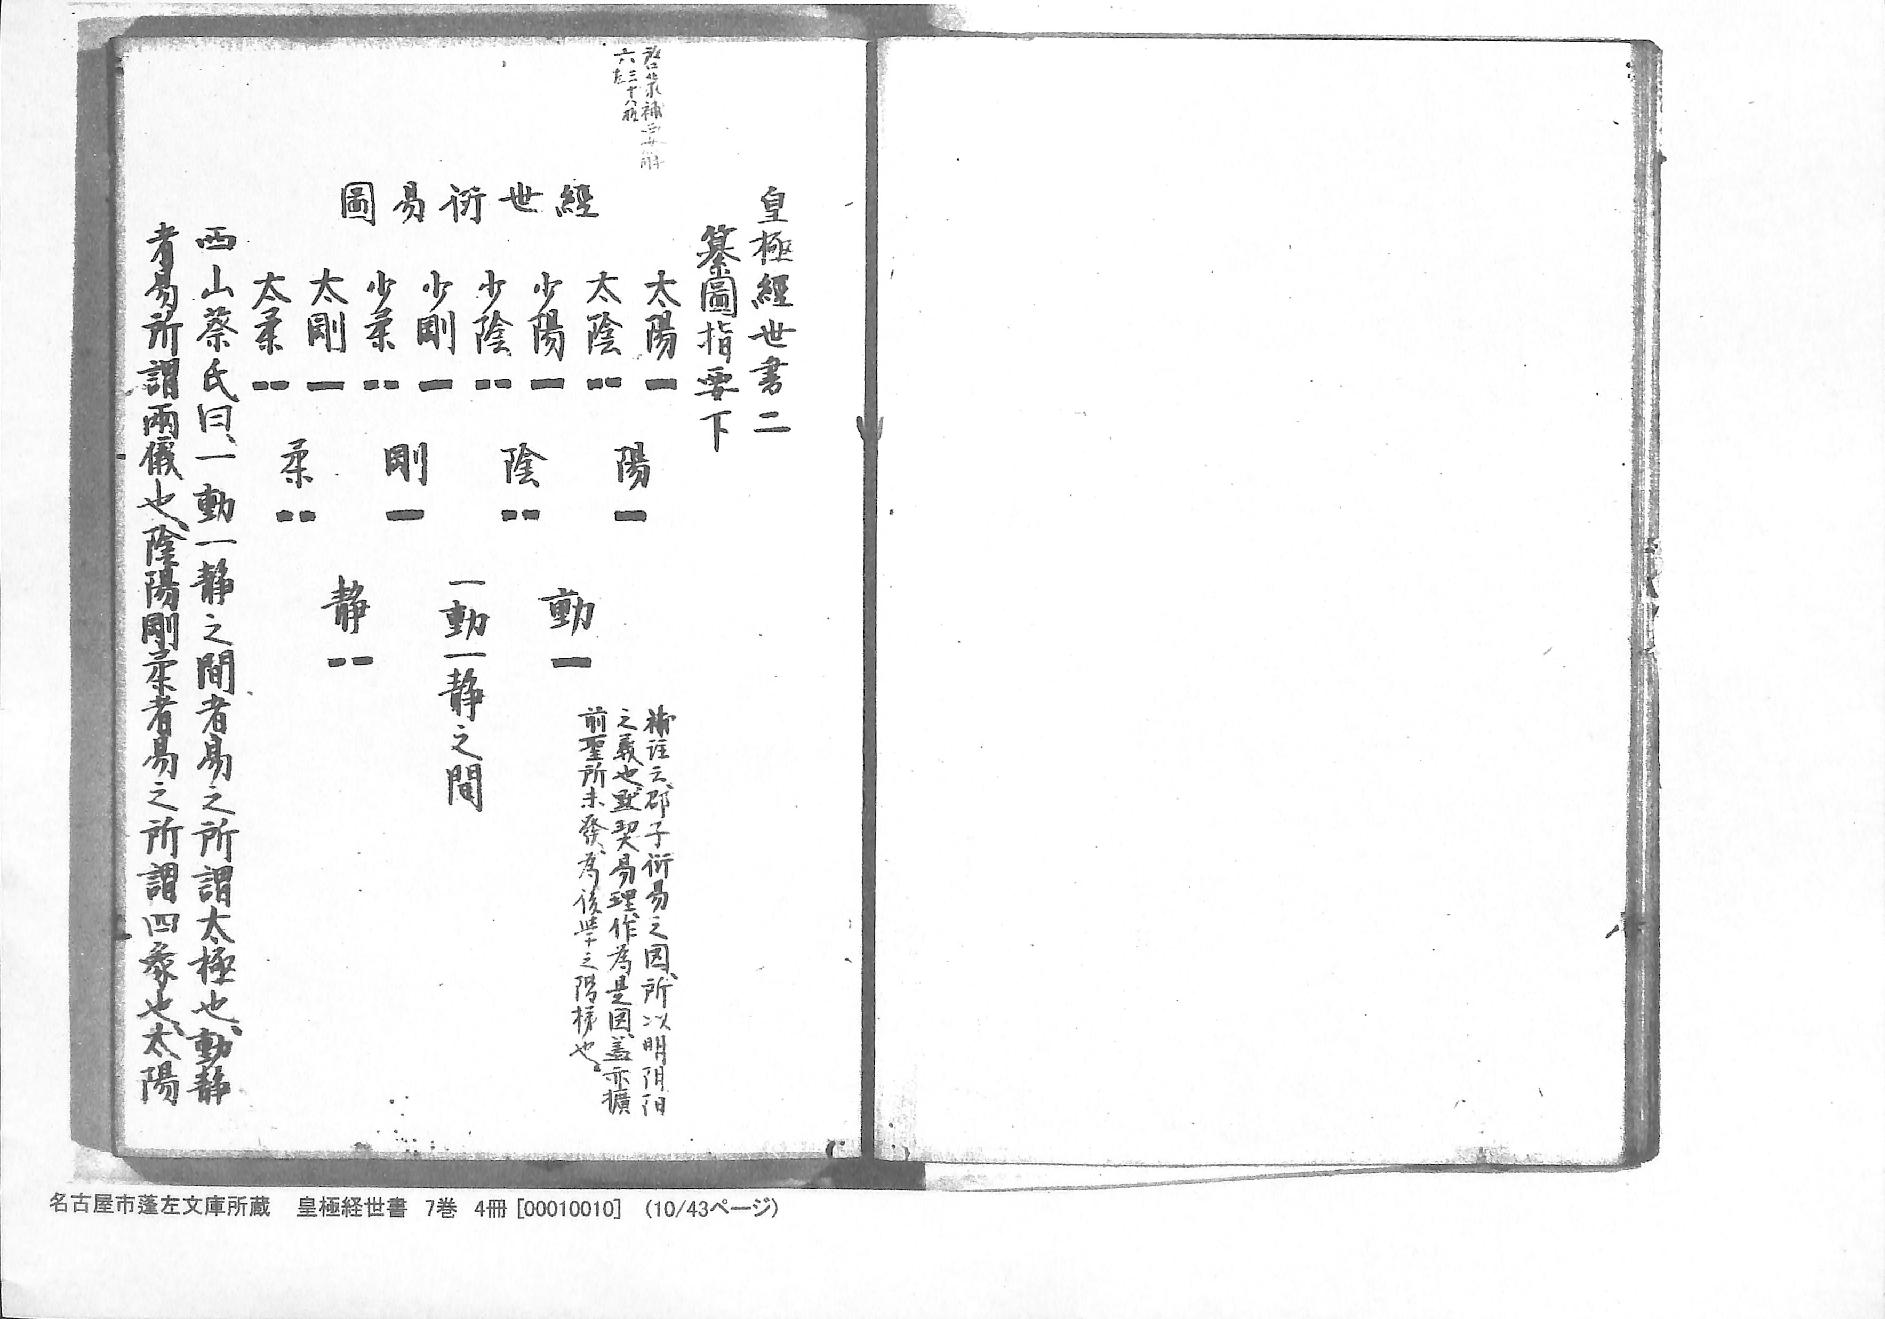 皇極經世書二
纂圖指要下
六
經世衍易圖
太陽 太陰 少陽 少陰 少剛 少柔 太剛 太柔
陽 陰 剛 柔
動 一動一静之間 静
補註云、邵子衍易之圖、所以明阴阳
之義也、默契易理、作為是圖、盖亦擴
前聖所未發、為後學之階梯也。
西山蔡氏曰、一動一静之間者易之所謂太極也、動静
者易所謂兩儀也、陰陽剛柔者易之所謂四象也、太陽
名古屋市蓬左文庫所蔵 皇極経世書 7巻 4冊 [00010010] (10/43ページ)